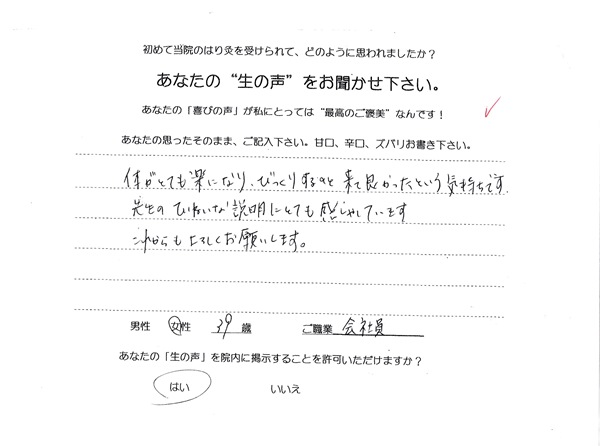 初めて当院のはり灸を受けられて、どのように思われましたか？
あなたの“生の声”をお聞かせ下さい。
あなたの「喜びの声」が私にとっては“最高のご褒美”なんです！
あなたの思ったそのまま、ご記入下さい。甘口、辛口、ズバリお書き下さい。
体がとても楽になり、びっくりするのと来て良かったという気持ちです。
先生のていねいな説明にとても感しゃしています
これからもよろしくお願いします。
男性 女性 39歳 ご職業 会社員
あなたの「生の声」を院内に掲示することを許可いただけますか？
はい いいえ